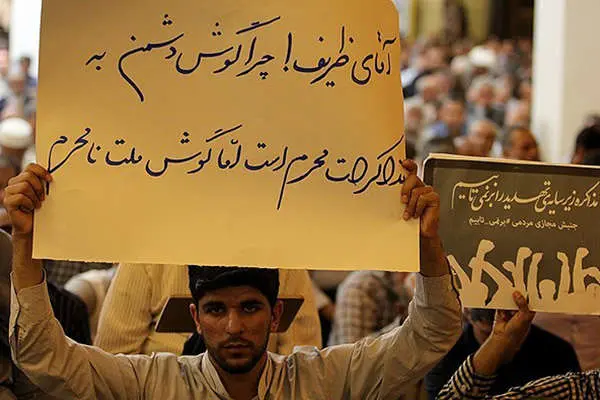 آقای ظریف! چرا گوش دشمن به
مذاکرات محرم است امّا گوش ملت نامحرم
مذاکره زیر سایه‌ی تهدید را بر نمی تابیم
جنبش مجازی مردمی #برنمی_تابیم